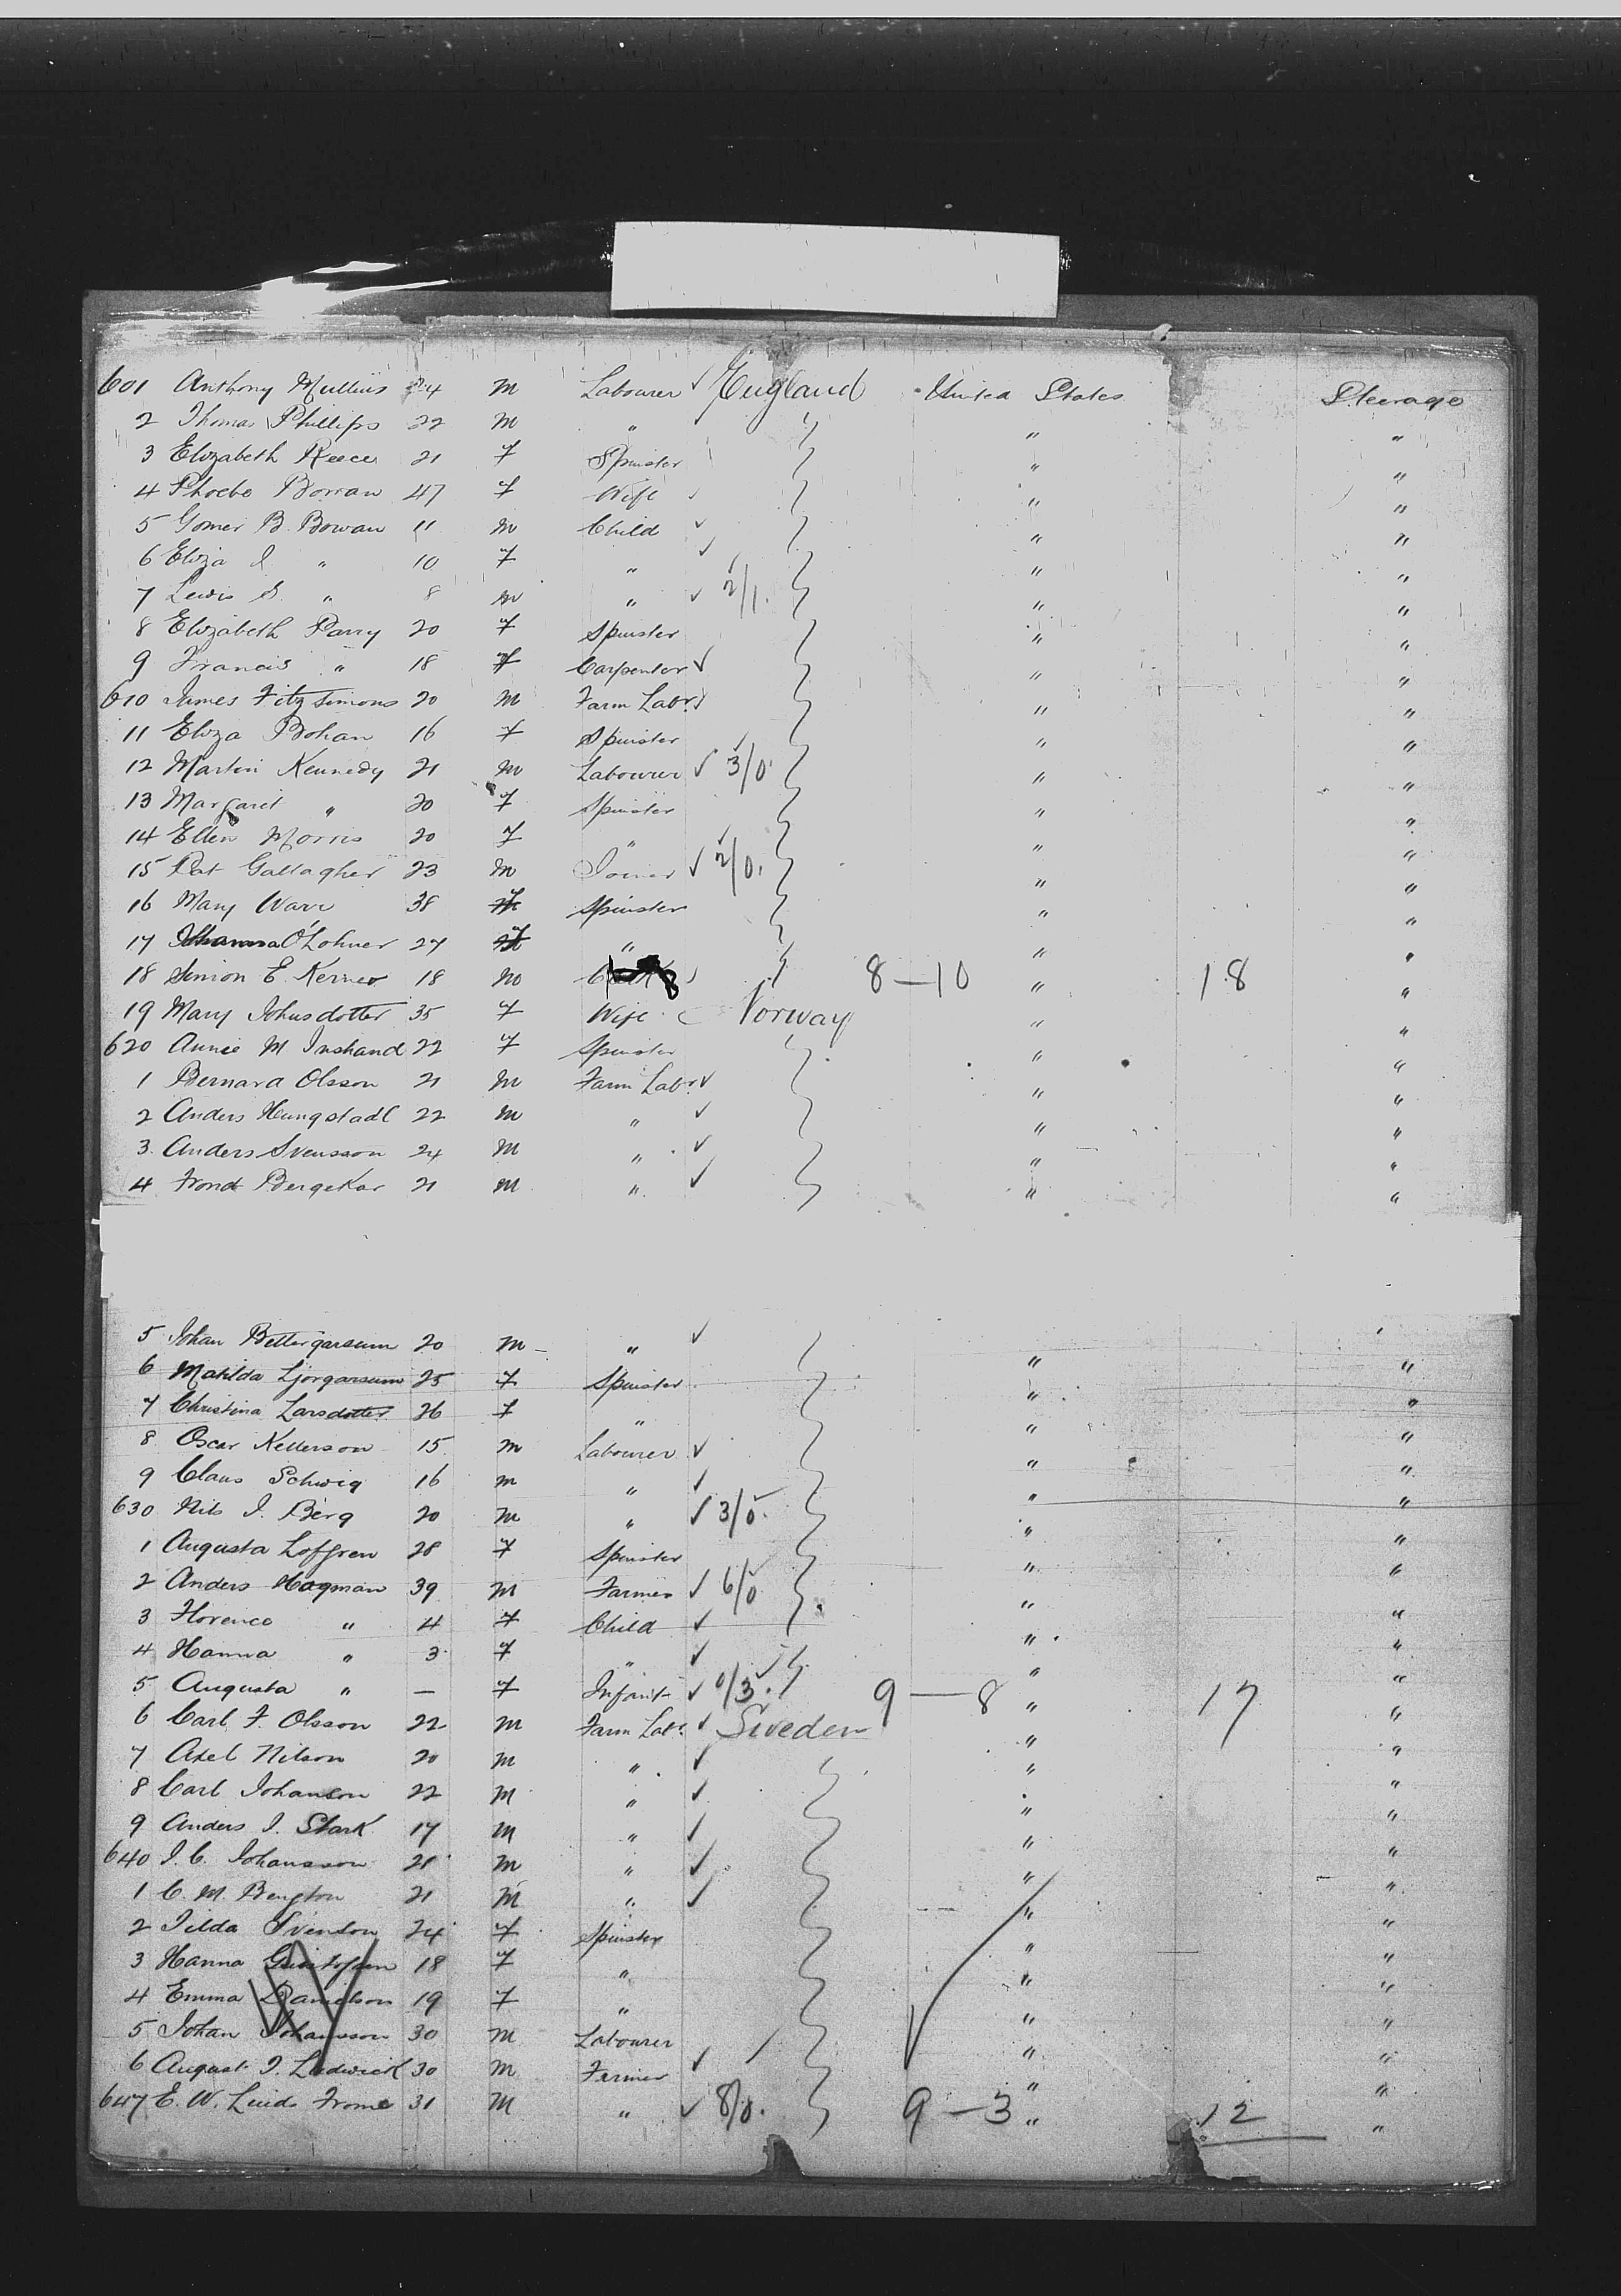 601 Anthony Mullins 24 m Labourer ✓ England United States Steerage
2 Thomas Phillips 22 m " " "
3 Elizabeth Reece 21 f Spinster " "
4 Phoebe Bowan 47 f Wife ✓ " "
5 Gomer B. Bowan 11 m Child ✓ " "
6 Eliza J. " 10 f " ✓ " "
7 Lewis S. " 8 m " ✓ 2/1. " "
8 Elizabeth Parry 20 f Spinster " "
9 Francis " 18 f Carpenter ✓ " "
610 James Fitzsimons 20 m Farm Labr. ✓ " "
11 Eliza Bohan 16 f Spinster " "
12 Martin Kennedy 21 m Labourer ✓ 3/0. " "
13 Margaret " 20 f Spinster " "
14 Ellen Morris 20 f " " "
15 Pat Gallagher 23 m Joiner ✓ 2/0. " "
16 Mary Warr 38 f Spinster " "
17 O'Lohner 27 f " " "
18 Simion E. 18 m ✓ 8—10 " 18 "
19 Mary Johnsdotter 35 f Wife Norway " "
620 Annie M. 22 f Spinster " "
1 Bernard Olsson 21 m Farm Labr. ✓ " "
2 Anders Hungstadl 22 m " ✓ " "
3 Anders Svensson 24 m " ✓ " "
4 Trond Bergekar 21 m " ✓ " "
5 Johan 20 m " ✓
6 Matilda 25 f Spinster " "
7 Christina Larsdotter 26 f " " "
8 Oscar Kellerson 15 m Labourer ✓ " "
9 Claus Schwig 16 m " ✓ " "
630 Nils J. Berg 20 m " ✓ 3/0. " "
1 Augusta Loffgren 28 f Spinster " "
2 Anders Hagman 39 m Farmer ✓ 6/0 " "
3 Florence " 4 f Child ✓ " "
4 Hanna " 3 f " ✓ " "
5 Augusta " — f Infant ✓ 0/3. 9—8 " 17 "
6 Carl F. Olsson 22 m Farm Labr. ✓ Sweden " "
7 Axel Nilson 20 m " ✓ " "
8 Carl Johanson 22 m " ✓ " "
9 Anders J. Stark 17 m " ✓ " "
640 J. C. Johansson 21 m " ✓ " "
1 C. M. Bengton 21 m " ✓ " "
2 Tilda Svenson 24 f Spinster " "
3 Hanna 18 f " " "
4 Emma Danielson 19 f " " "
5 Johan Johansson 30 m Labourer " "
6 August J. Ludwick 30 m Farmer ✓ " "
647 E. W. Linds Frome 31 m " ✓ 8/0. 9—3 " 12 "